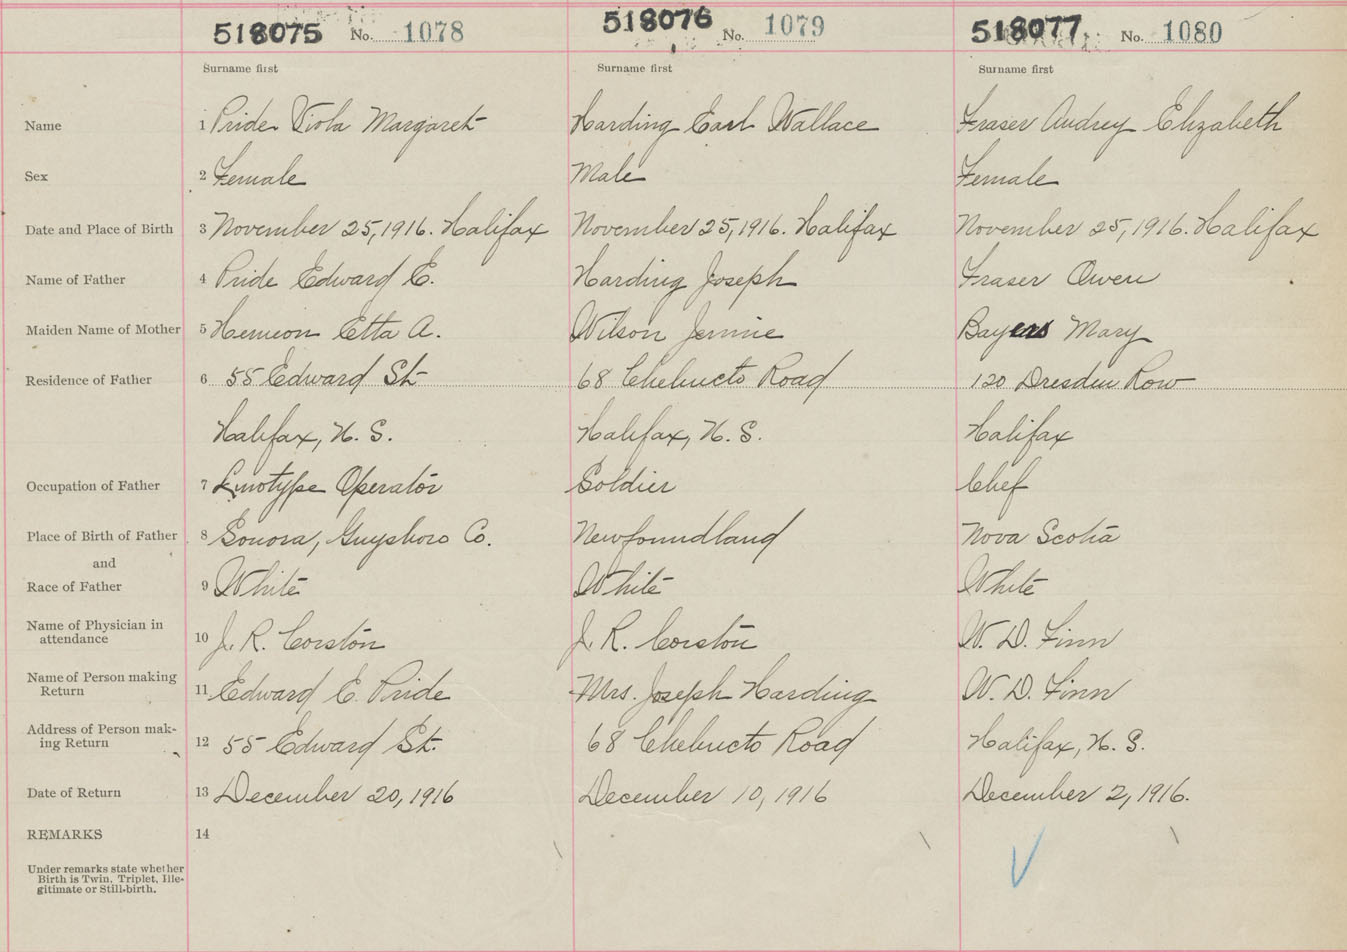 518075 No. 1078 518076 No. 1079 518077 No. 1080
Surname first Surname first Surname first
Name 1 Pride Viola Margaret Harding Earl Wallace Fraser Audrey Elizabeth
Sex 2 Female Male Female
Date and Place of Birth 3 November 25, 1916. Halifax November 25, 1916. Halifax November 25, 1916. Halifax
Name of Father 4 Pride Edward E. Harding Joseph Fraser Owen
Maiden Name of Mother 5 Hemeon Etta A. Wilson Jennie Bayers Mary
Residence of Father 6 55 Edward St. 68 Chebucto Road 120 Dresden Row
Halifax, N. S. Halifax, N. S. Halifax
Occupation of Father 7 Linotype Operator Soldier Chef
Place of Birth of Father 8 Sonora, Guysboro Co. Newfoundland Nova Scotia
and
Race of Father 9 White White White
Name of Physician in
attendance 10 J. R. Corston J. R. Corston W. D. Finn
Name of Person making
Return 11 Edward E. Pride Mrs. Joseph Harding W. D. Finn
Address of Person mak-
ing Return 12 55 Edward St. 68 Chebucto Road Halifax, N. S.
Date of Return 13 December 20, 1916 December 10, 1916 December 2, 1916.
REMARKS 14
Under remarks state whether
Birth is Twin, Triplet, Ille-
gitimate or Still-birth.